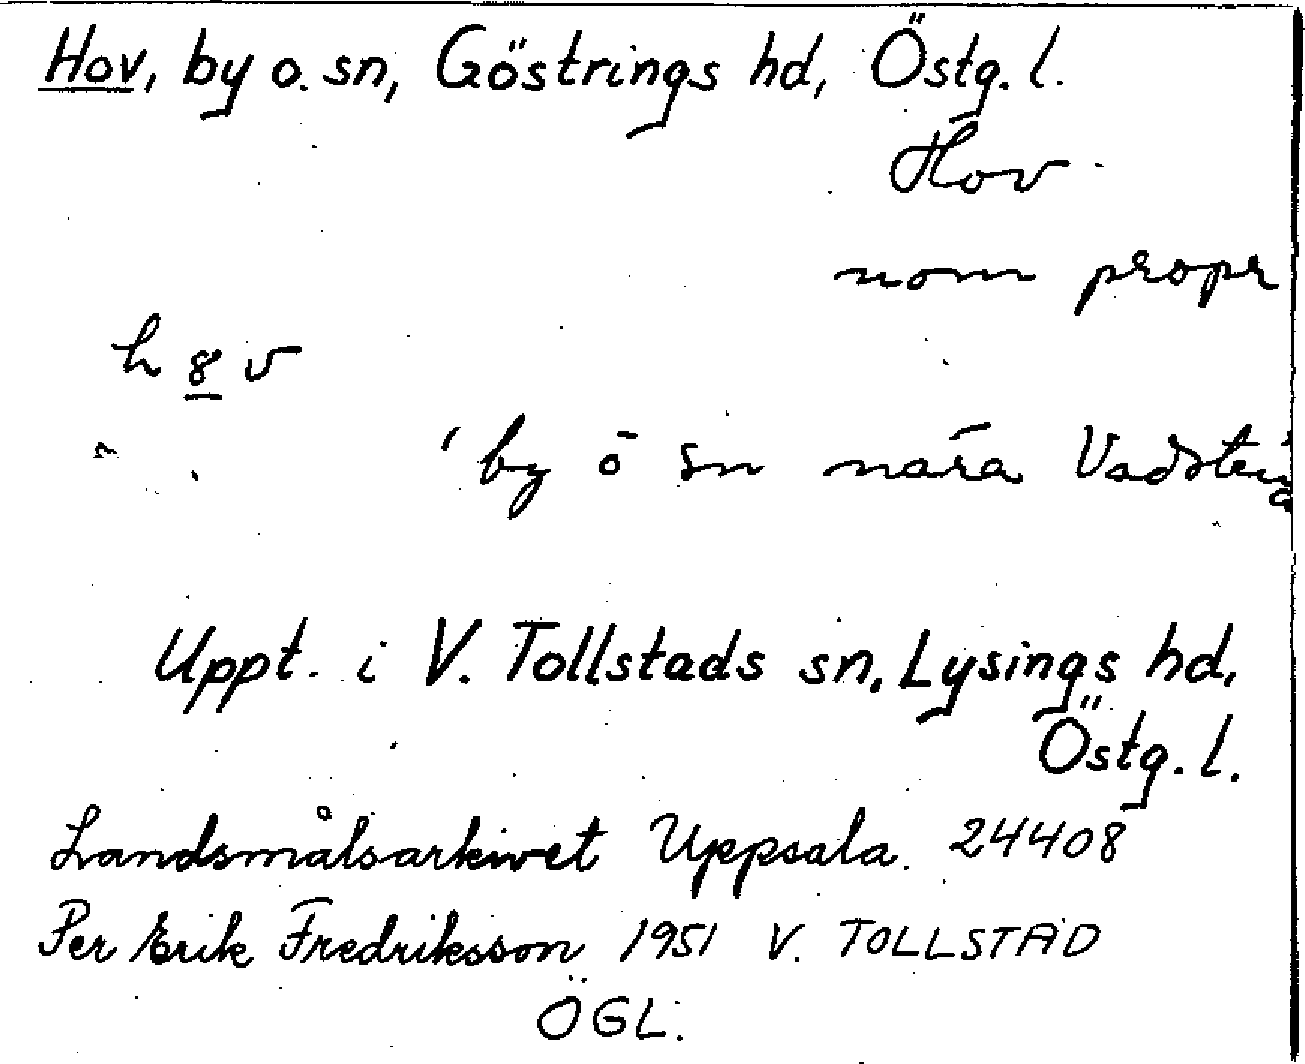 Hov, by o. sn, Göstrings hd, Östg. l.
Hov
nom propr
h 8 v
' by ō sn nāra Vadstena
Uppt. i V. Tollstads sn, Lysings hd,
Östg. l.
Landsmålsarkivet Uppsala. 24408
Per Erik Fredriksson 1951 V. TOLLSTAD
ÖGL.